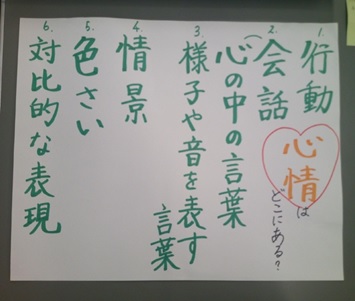 1. 行動
2. 会話
(心の中の言葉
3. 様子や音を表す
言葉
4. 情景
5. 色さい
6. 対比的な表現
心情は
どこにある?